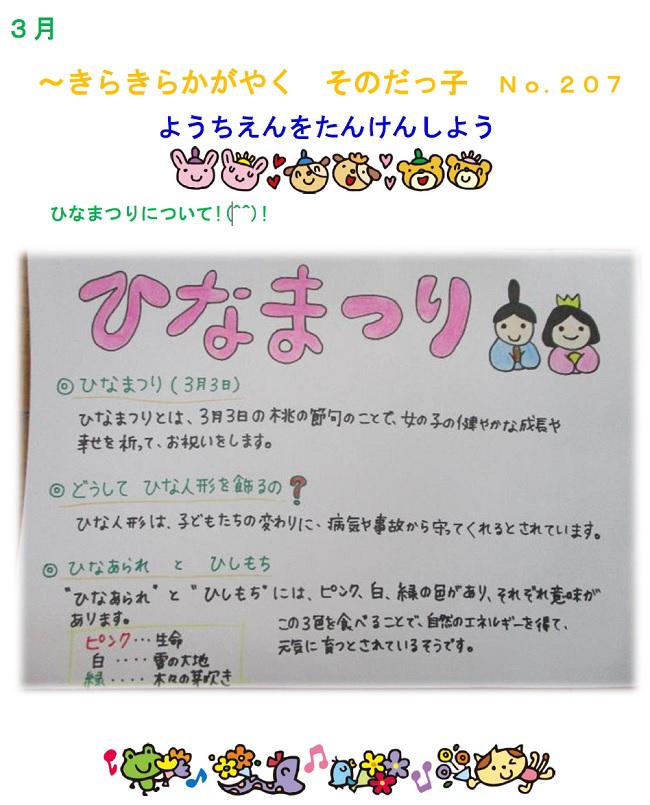 3月
～きらきらかがやく　そのだっ子　Ｎｏ.２０７
ようちえんをたんけんしよう
ひなまつりについて!(^^)!
ひなまつり
◎ひなまつり(3月3日)
ひなまつりとは、3月3日の桃の節句のことで、女の子の健やかな成長や
幸せを祈って、お祝いをします。
◎どうして ひな人形を飾るの?
ひな人形は、子どもたちの変わりに、病気や事故から守ってくれるとされています。
◎ひなあられ と ひしもち
"ひなあられ" と "ひしもち" には、ピンク、白、緑の色があり、それぞれ意味が
あります。
ピンク・・・生命
白・・・・雪の大地
緑・・・・木々の芽吹き
この3色を食べることで、自然のエネルギーを得て、
元気に育つとされているそうです。